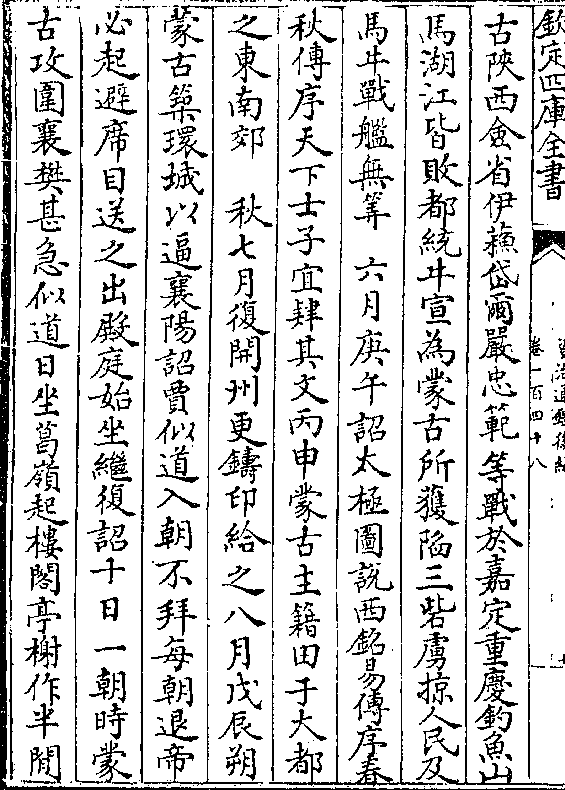 欽定四庫全書
資治通鑑後編
卷一百四十八
古陜西僉省伊蘓岱爾嚴忠範等戰於嘉定重慶釣魚山
馬湖江皆敗都統牛宣為蒙古所獲陥三砦虜掠人民及
馬牛戰艦無筭　六月庚午詔太極圖說西銘易傳序春
秋傳序天下士子宜肄其文丙申蒙古主籍田于大都
之東南郊　秋七月復開州更鑄印給之八月戊辰朔
蒙古築環城以逼襄陽詔賈似道入朝不拜每朝退帝
必起避席目送之出殿庭始坐繼復詔十日一朝時蒙
古攻圍襄樊甚急似道日坐葛嶺起樓閣亭榭作半閒